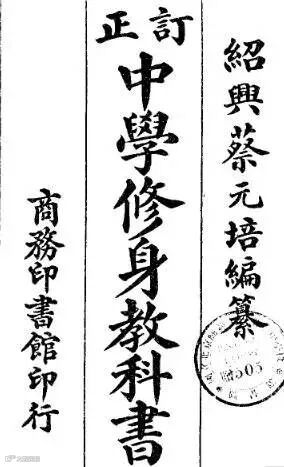 紹興蔡元培編纂
訂正
中學修身教科書
商務印書館印行
505